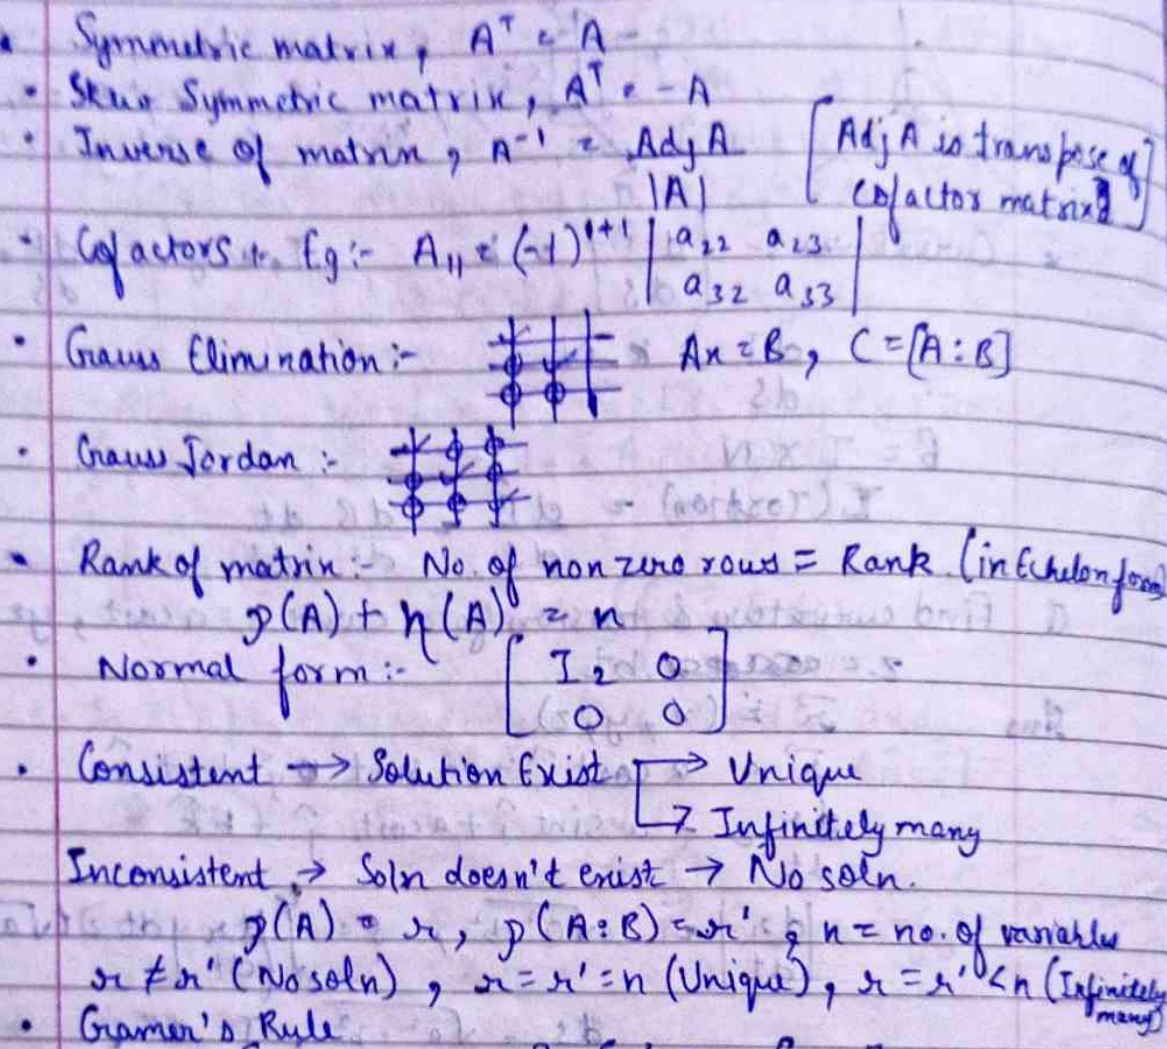 • Symmetric matrix, Aᵀ = A
• Skew Symmetric matrix, Aᵀ = -A
• Inverse of matrix, A⁻¹ = Adj A / |A| [Adj A is transpose of cofactor matrix]
• Cofactors :- Eg:- A₁₁ = (-1)¹⁺¹ | a₂₂ a₂₃
a₃₂ a₃₃ |
• Gauss Elimination :- Ax = B, C = [A : B]
• Gauss Jordan :-
• Rank of matrix:- No. of non zero rows = Rank (in Echelon form)
ρ(A) + η(A) = n
• Normal form :- [ I₂ 0
0 0 ]
• Consistent → Solution Exist → Unique
→ Infinitely many
Inconsistent → Soln doesn't exist → No soln.
ρ(A) = r, ρ(A:B) = r' , n = no. of variables
r ≠ r' (No soln) , r = r' = n (Unique), r = r' < n (Infinitely many)
• Cramer's Rule